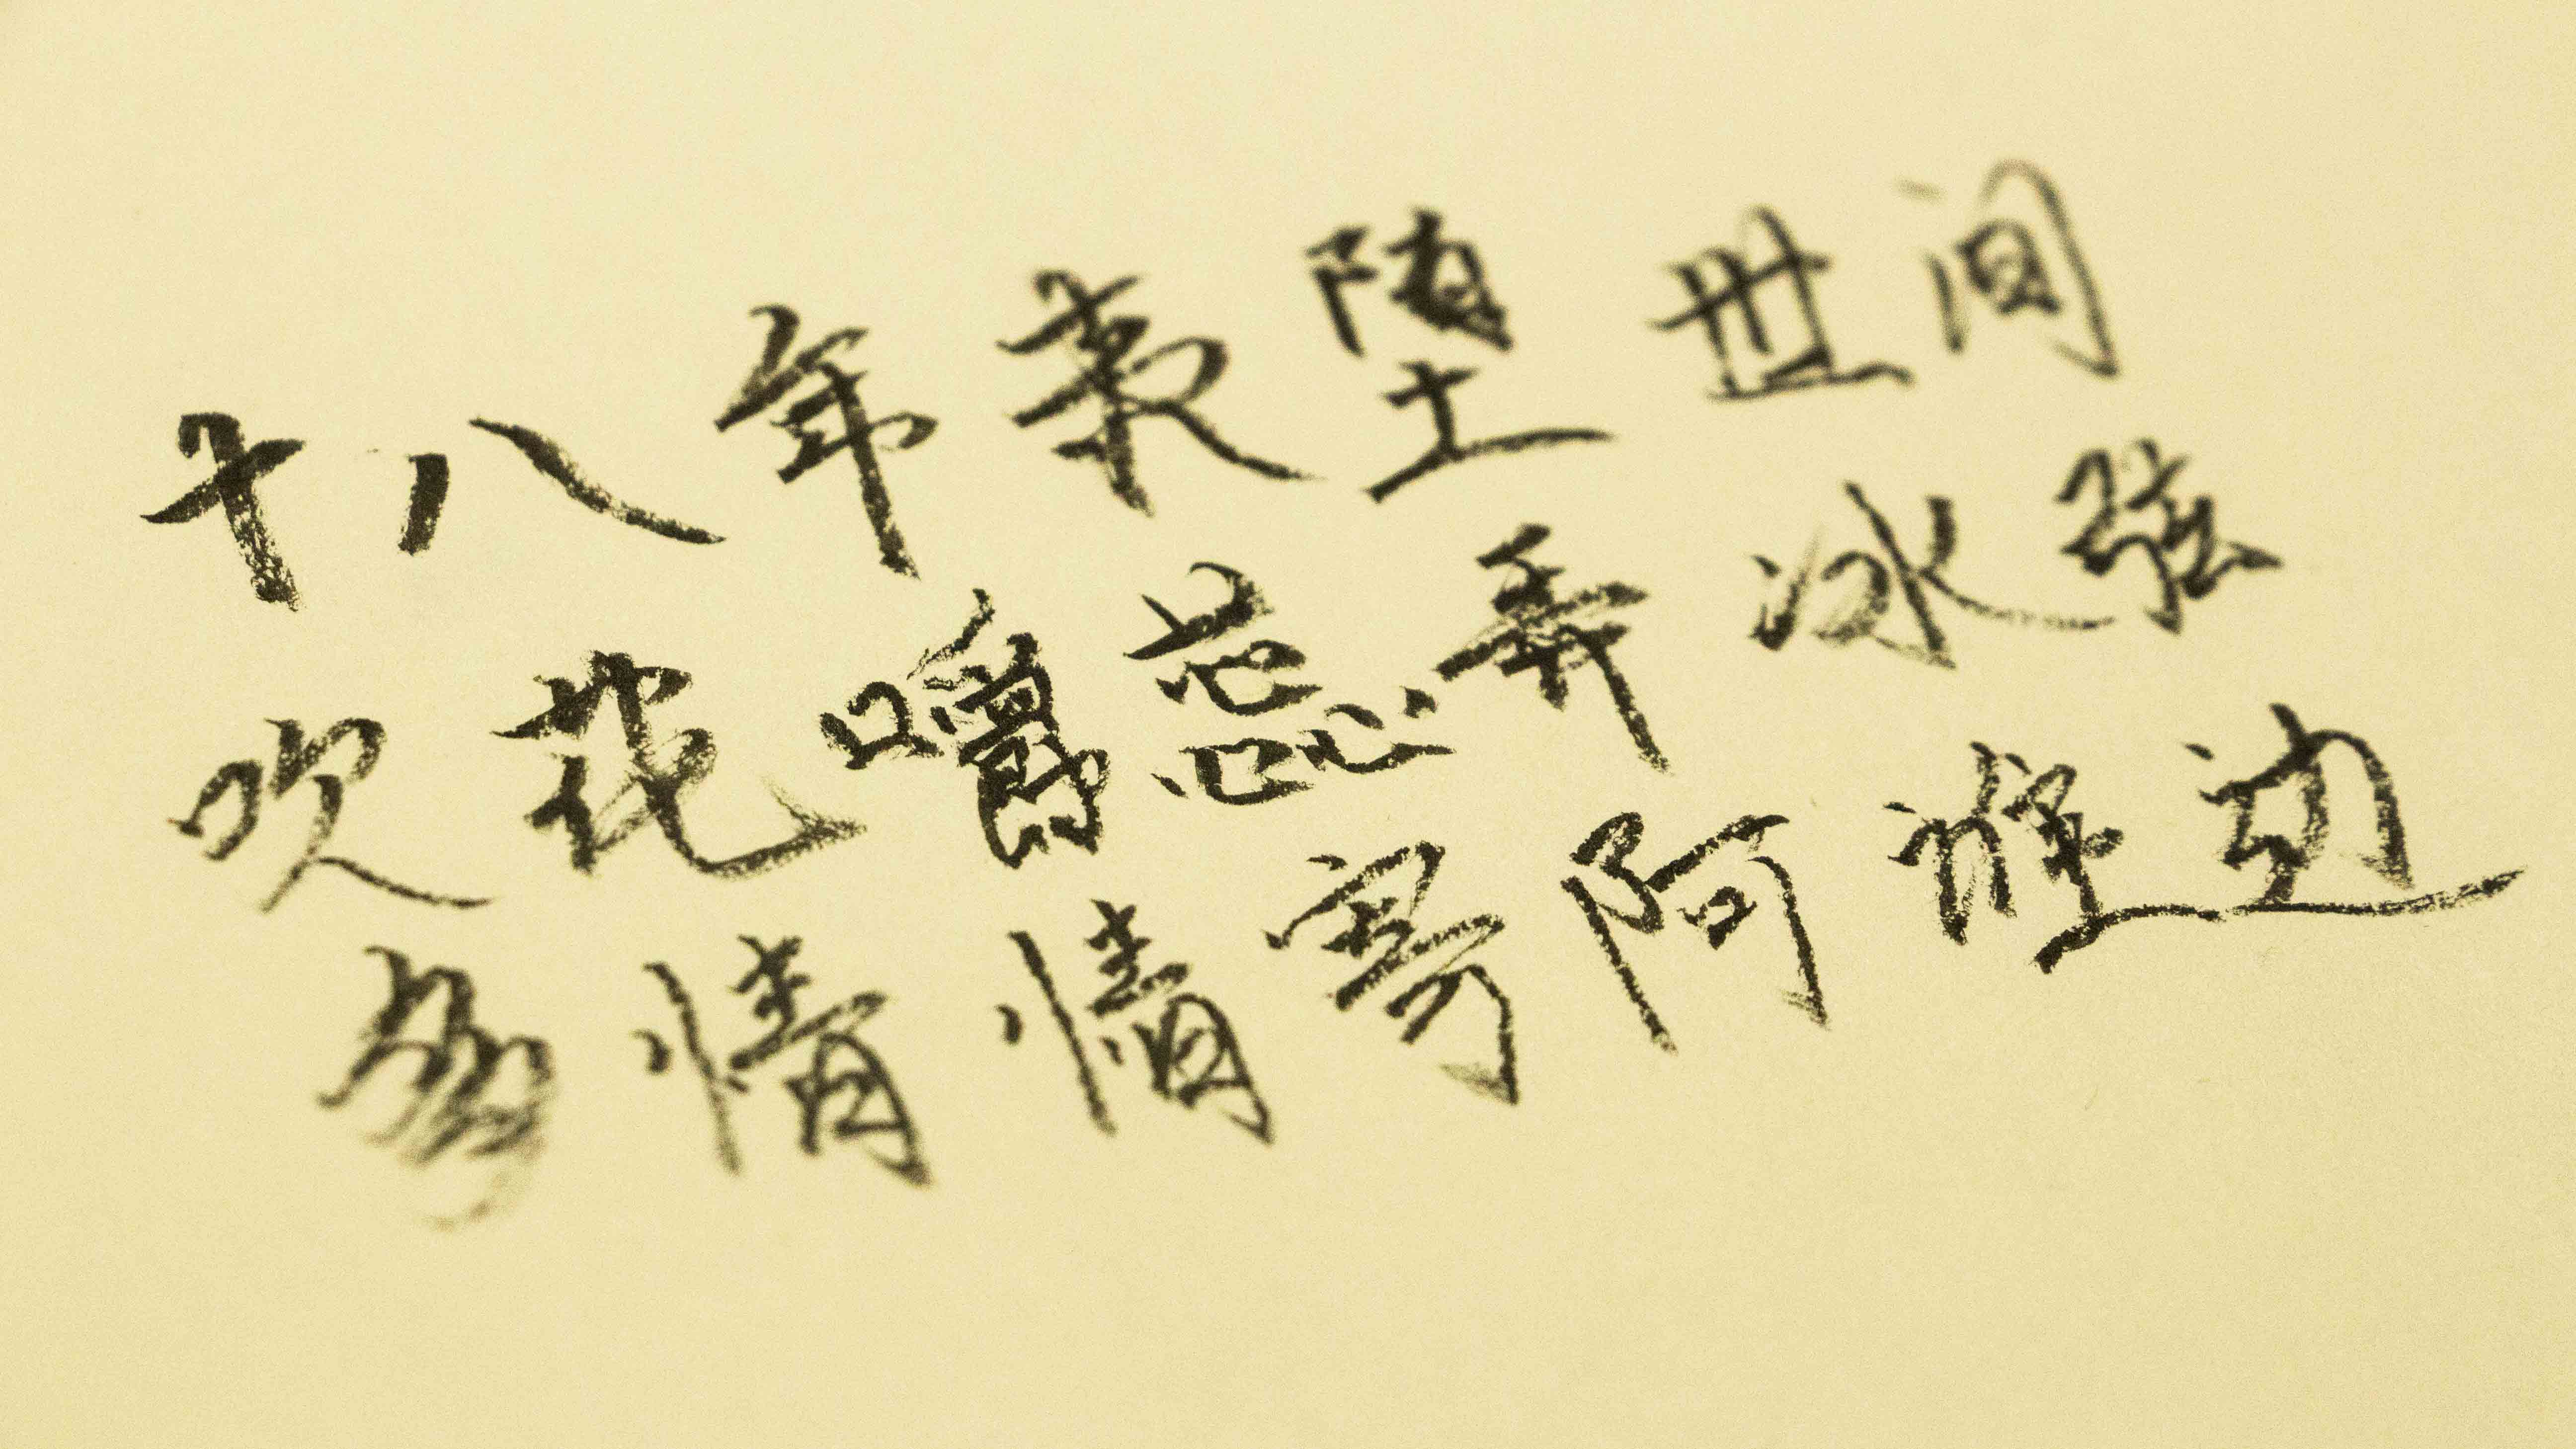 十八年来堕世间
吹花嚼蕊弄冰弦
多情情寄阿谁边